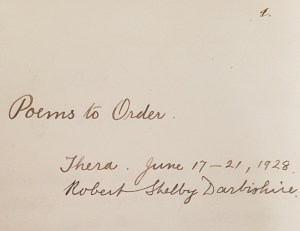 1.
Poems to Order.
Thera. June 17-21, 1928.
Robert Shelby Darbishire.